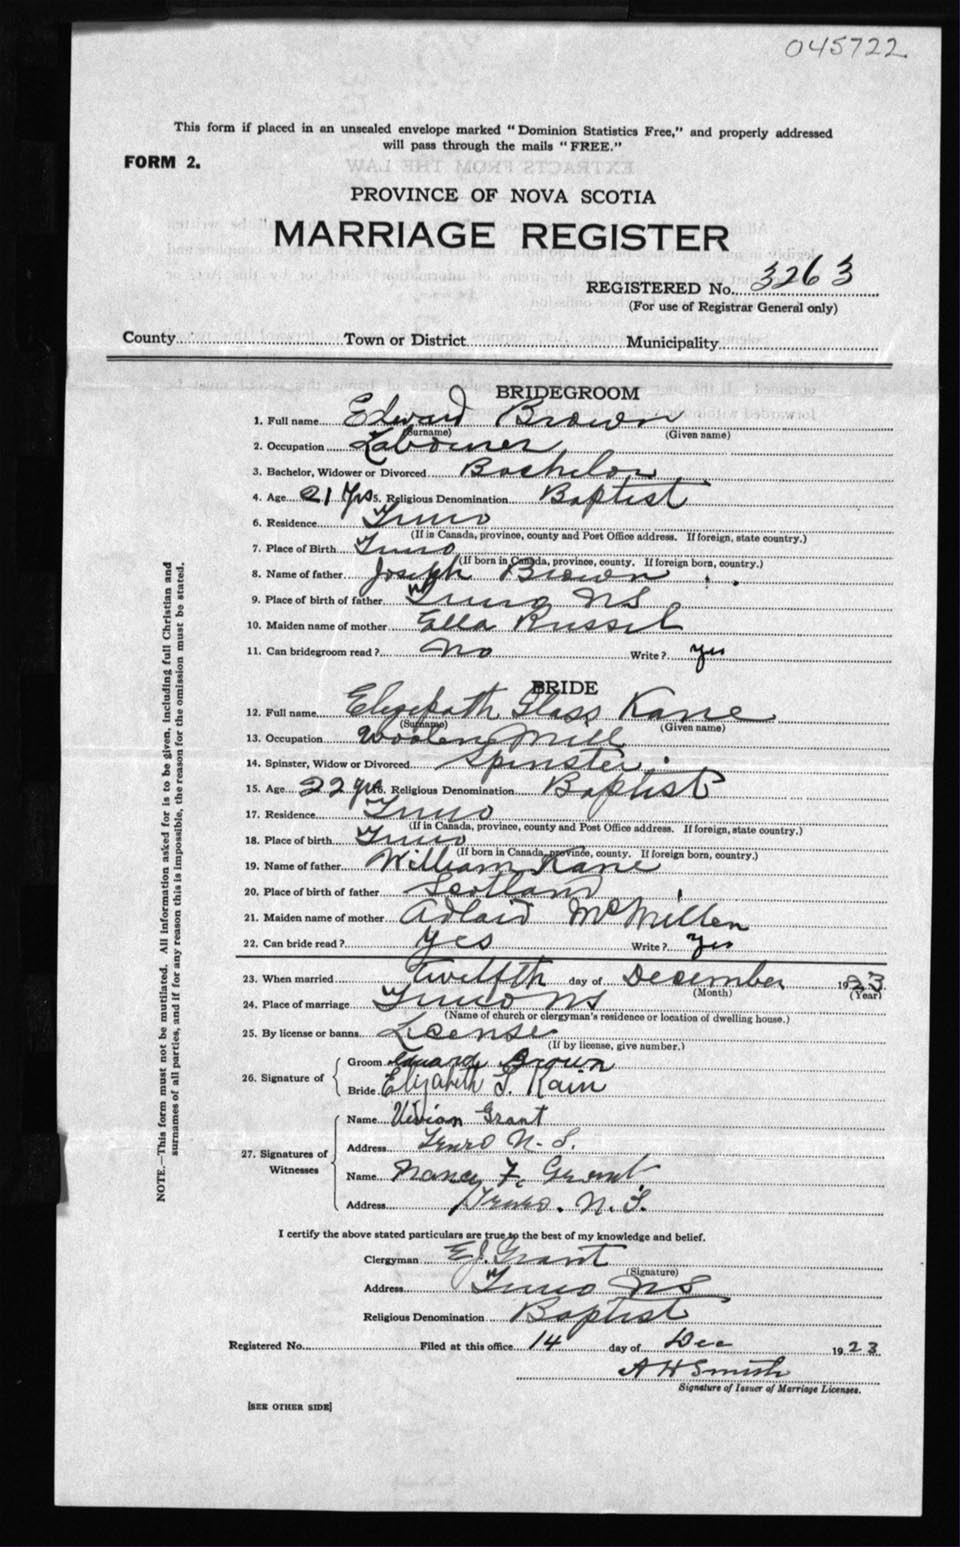 045722
This form if placed in an unsealed envelope marked "Dominion Statistics Free," and properly addressed
will pass through the mails "FREE."
FORM 2.
PROVINCE OF NOVA SCOTIA
MARRIAGE REGISTER
REGISTERED No. 3263
(For use of Registrar General only)
County Town or District Municipality
BRIDEGROOM
1. Full name Edward Brown
(Surname) (Given name)
2. Occupation Labourer
3. Bachelor, Widower or Divorced Bachelor
4. Age 21 Yrs 5. Religious Denomination Baptist
6. Residence Truro
(If in Canada, province, county and Post Office address. If foreign, state country.)
7. Place of Birth Truro
(If born in Canada, province, county. If foreign born, country.)
8. Name of father Joseph Brown
9. Place of birth of father Truro NS
10. Maiden name of mother Ella Russel
11. Can bridegroom read? No Write? yes
BRIDE
12. Full name Elizebath Glass Kane
(Surname) (Given name)
13. Occupation Woolen Mill
14. Spinster, Widow or Divorced Spinster
15. Age 22 yrs 16. Religious Denomination Baptist
17. Residence Truro
(If in Canada, province, county and Post Office address. If foreign, state country.)
18. Place of birth Truro
(If born in Canada, province, county. If foreign born, country.)
19. Name of father William Kane
20. Place of birth of father Scotland
21. Maiden name of mother Adlaid McMillen
22. Can bride read? Yes Write? Yes
23. When married Twelfth day of December 1923
(Month) (Year)
24. Place of marriage Truro NS
(Name of church or clergyman's residence or location of dwelling house.)
25. By license or banns License
(If by license, give number.)
26. Signature of Groom Edward Brown
Bride Elizabeth G. Kain
27. Signatures of Witnesses
Name Vivian Grant
Address Truro N.S.
Name Nancy F. Grant
Address Truro. N.S.
I certify the above stated particulars are true to the best of my knowledge and belief.
Clergyman E.J. Grant
(Signature)
Address Truro NS
Religious Denomination Baptist
Registered No. Filed at this office 14 day of Dec 1923
A H Smith
Signature of Issuer of Marriage Licenses.
[SEE OTHER SIDE]
NOTE.—This form must not be mutilated. All information asked for is to be given, including full Christian and
surnames of all parties, and if for any reason this is impossible, the reason for the omission must be stated.